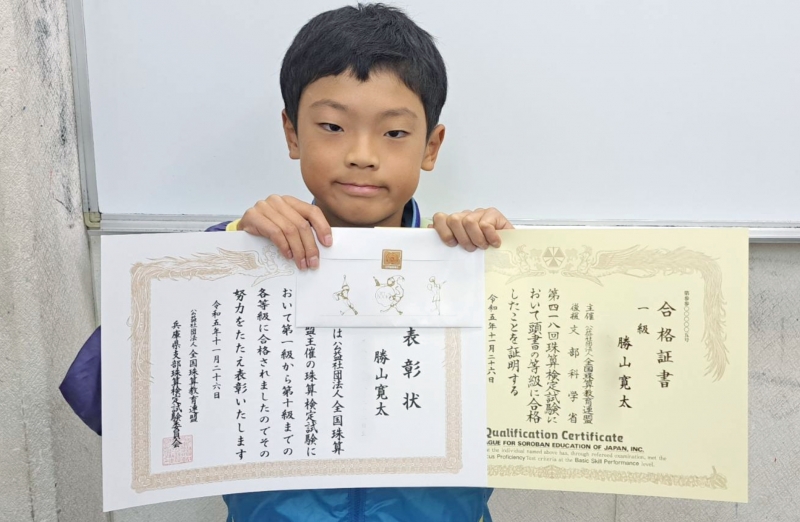 表彰状
勝山寛太
は(公益社団法人)全国珠算
盟主催の珠算検定試験に
おいて第一級から第十級までの
各等級に合格されましたのでその
努力をたたえ表彰いたします
令和五年十一月二十六日
公益社団法人 全国珠算教育連盟
兵庫県支部珠算検定試験委員会
合格証書
一級
勝山寛太
主催 公益社団法人 全国珠算教育連盟
後援 文部科学省
第四一八回珠算検定試験に
おいて頭書の等級に合格
したことを証明する
令和五年十一月二六日
Qualification Certificate
AGUE FOR SOROBAN EDUCATION OF JAPAN, INC.
the individual named above has, through refereed examination, met the
us Proficiency test criteria at the Basic Skill Performance level.